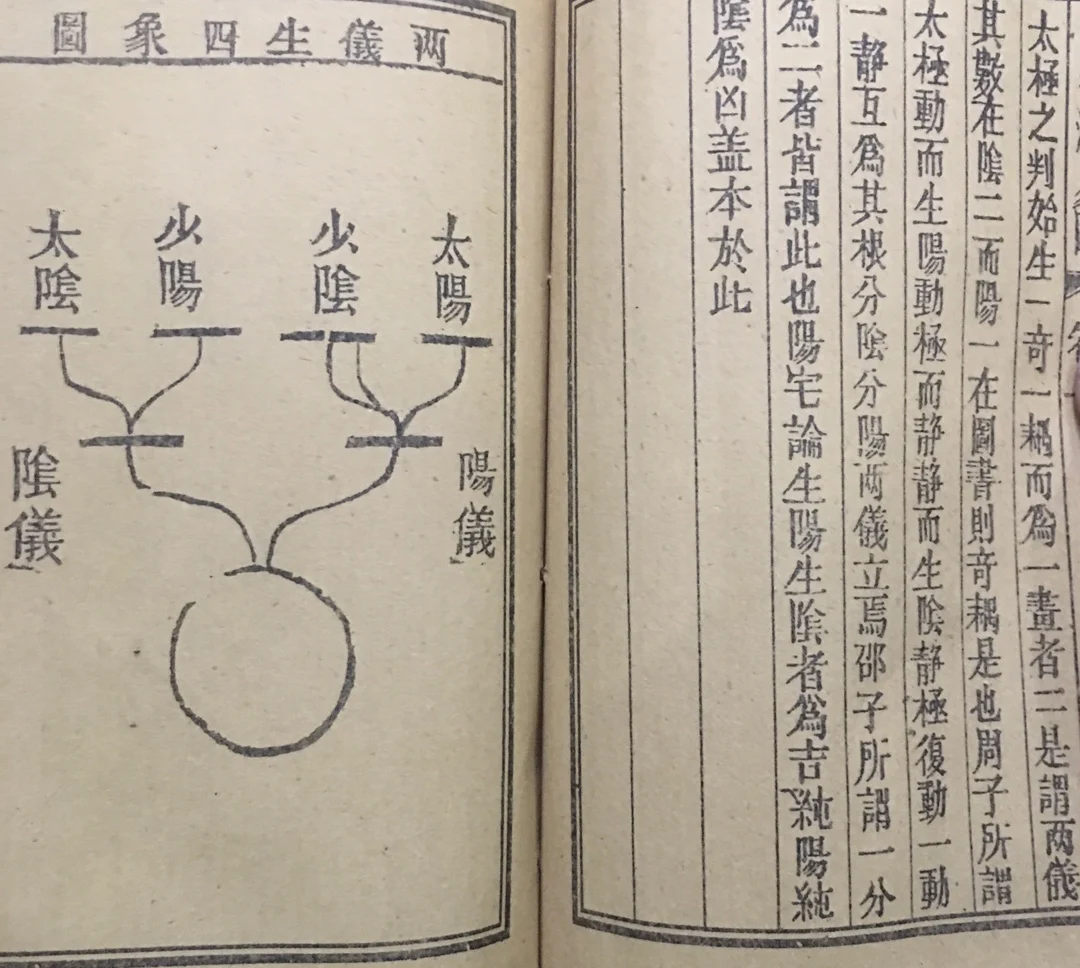 太極之判始生一奇一耦而爲一畫者二是謂两儀
其數在陰二而陽一在圖書則奇耦是也周子所謂
太極動而生陽動極而静静而生陰静極復動一動
一静互爲其根分陰分陽两儀立焉邵子所謂一分
爲二者皆謂此也陽宅論生陽生陰者爲吉純陽純
陰爲凶盖本於此
两儀生四象圖
太陽
少陰
少陽
太陰
陽儀
陰儀